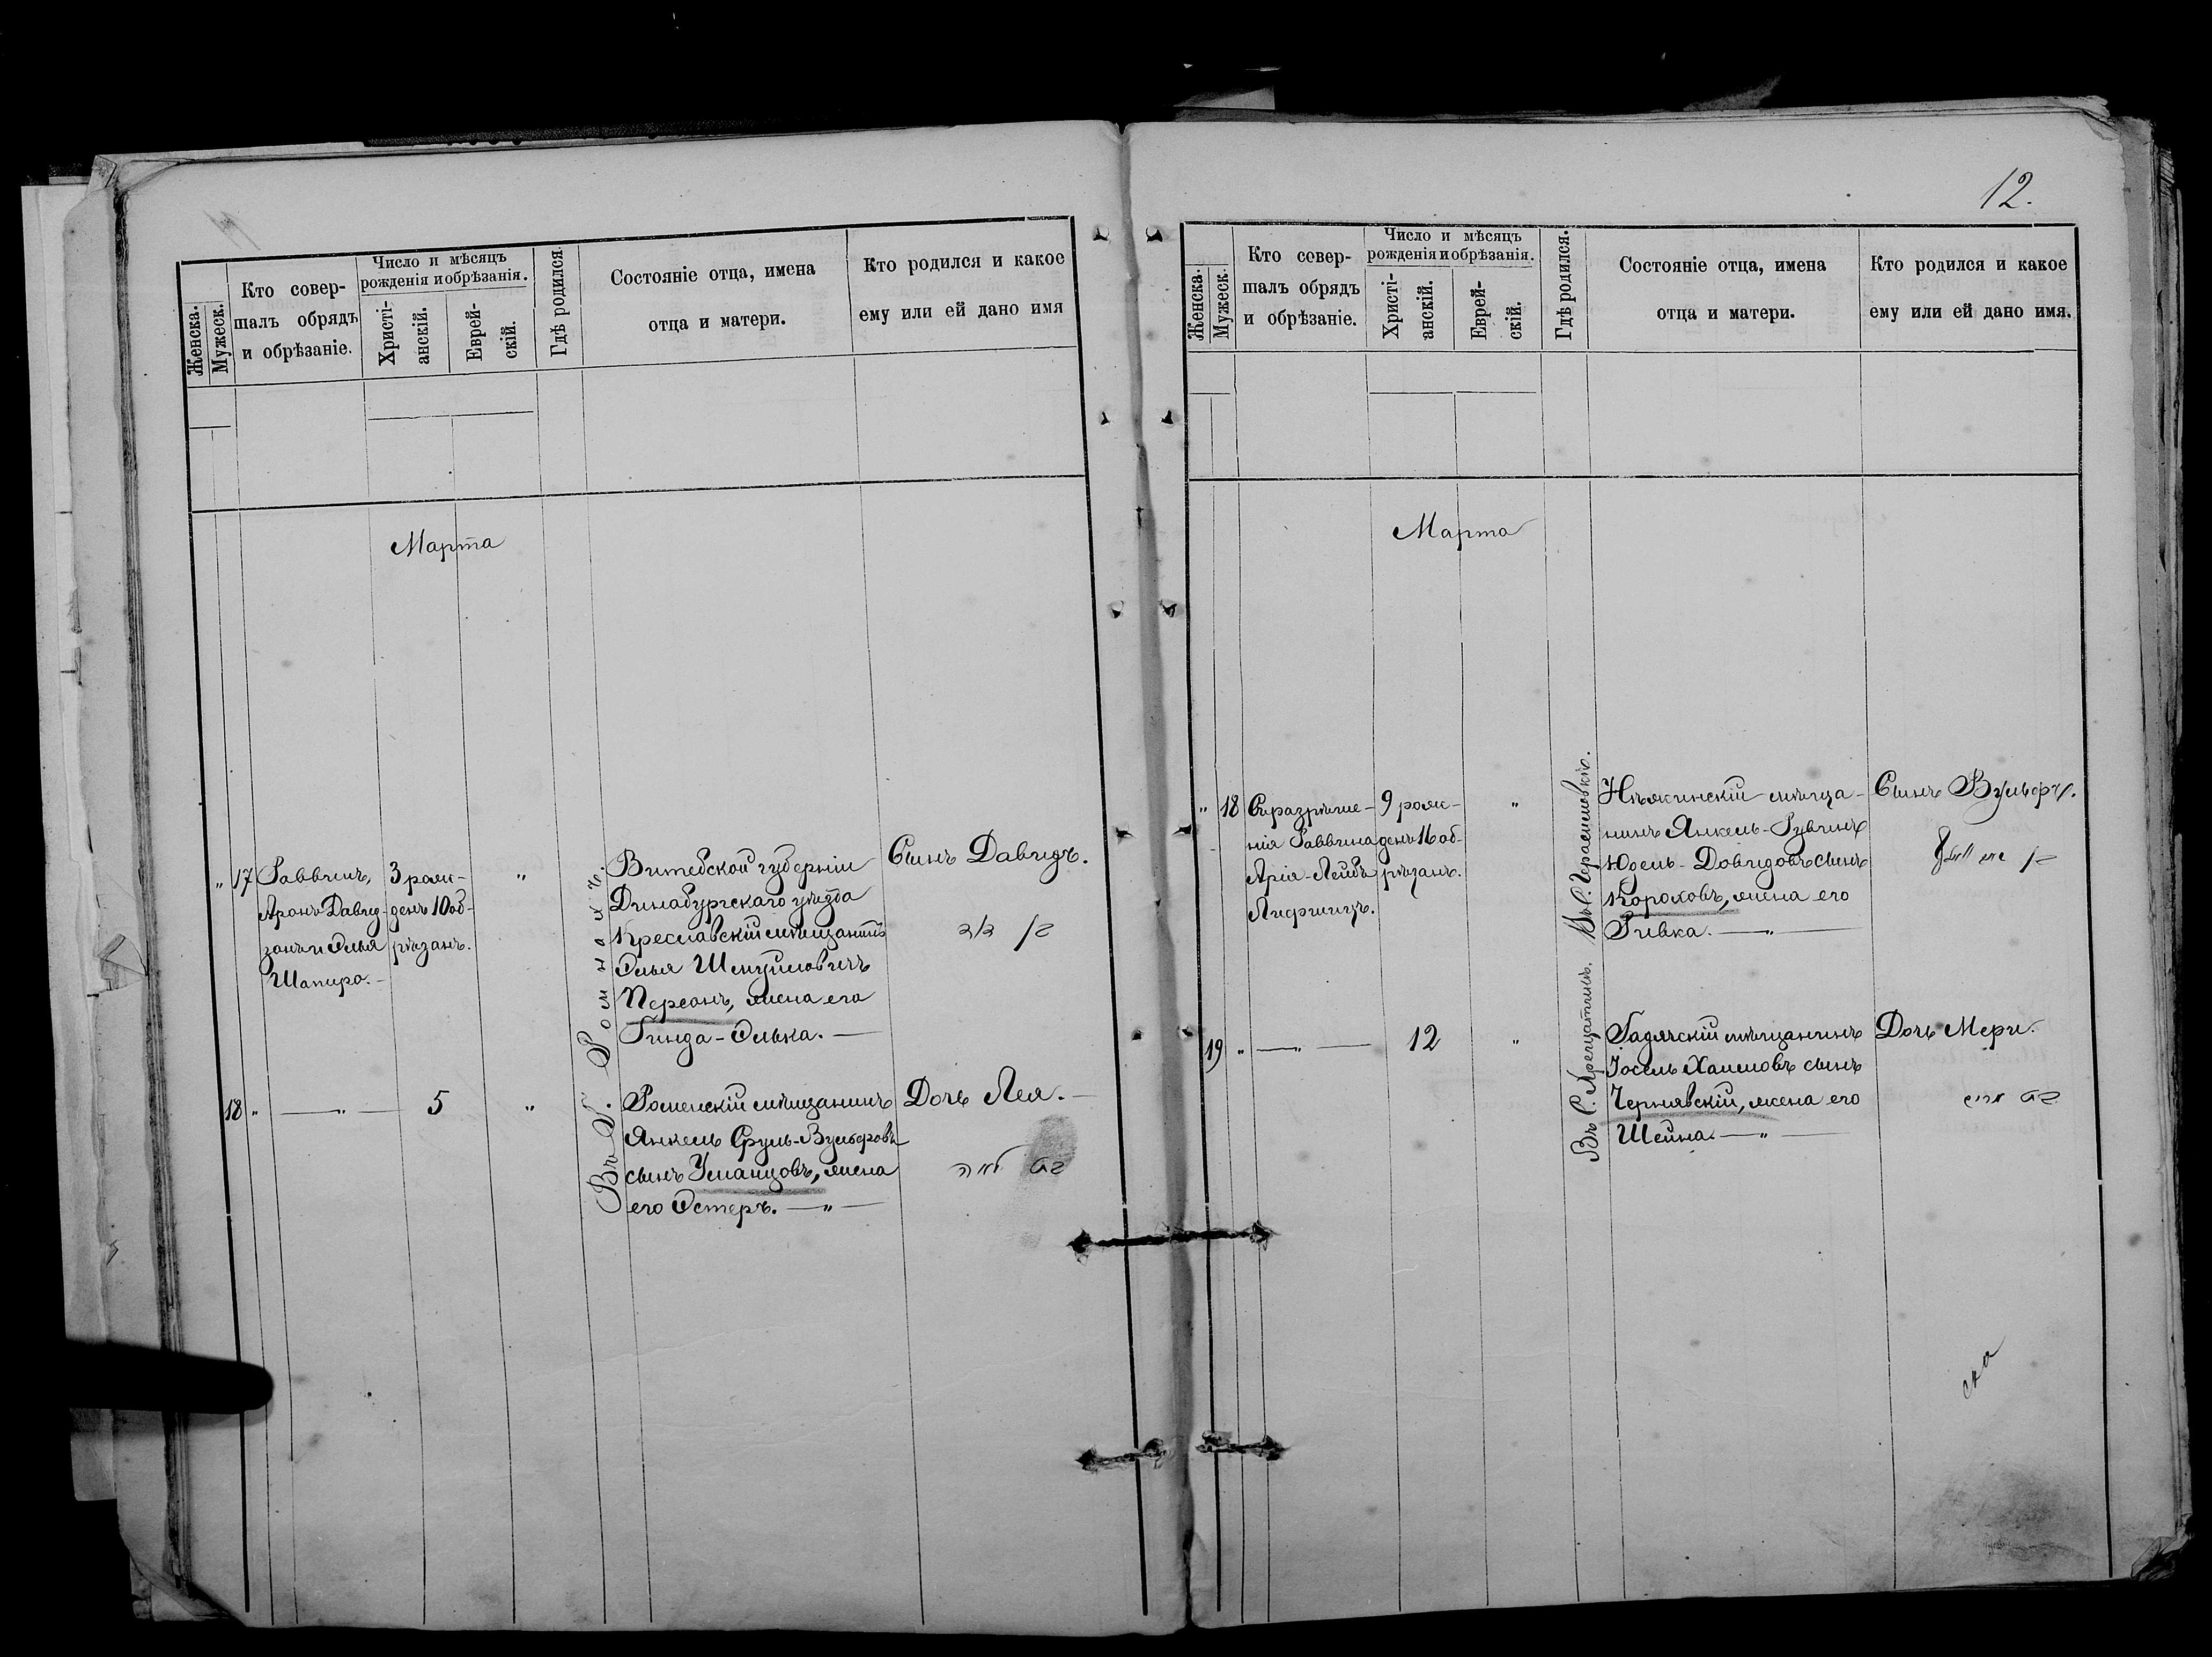 12.
Женска.
Мужеск.
Кто совер-
шалъ обрядъ
и обрѣзаніе.
Число и мѣсяцъ
рожденія и обрѣзанія.
Христі-
анскій.
Еврей-
скій.
Гдѣ родился.
Состояніе отца, имена
отца и матери.
Кто родился и какое
ему или ей дано имя
Марта
" 17
Раввинъ,
Аронъ Давид-
зонъ и Элья
Шапиро.-
3 рож-
денъ 10 об-
рѣзанъ.
"
Въ г. Ромнахъ.
Витебской губерніи
Динабургскаго уѣзда
Креславскій мѣщанинъ
Элья Шмуйловичъ
Персонъ, жена его
Гинда-Элька. —
Сынъ Давидъ.
בן דוד
18 "
— " —
5
"
Роменскій мѣщанинъ
Янкель Сруль-Вульфовъ
сынъ Уманцовъ, жена
его Эстеръ. — " —
Дочь Лея. —
בת לאה
Женска.
Мужеск.
Кто совер-
шалъ обрядъ
и обрѣзаніе.
Число и мѣсяцъ
рожденія и обрѣзанія.
Христі-
анскій.
Еврей-
скій.
Гдѣ родился.
Состояніе отца, имена
отца и матери.
Кто родился и какое
ему или ей дано имя.
Марта
" 18
Съ разрѣше-
нія Раввина
Арія-Лейбъ
Лифшицъ.
9 рож-
денъ 16 об-
рѣзанъ.
"
Нѣжинскій мѣща-
нинъ Янкель-Рувинъ
Юдель-Довидовъ сынъ
Короховъ, жена его
Ривка. — " —
Сынъ Вульфъ.
בן
19 "
— " —
12
"
Въ с.
Гадячскій мѣщанинъ
Іосель Хаимовъ сынъ
Чернявскій, жена его
Шейна. — " —
Дочь Мери.
בת מרי